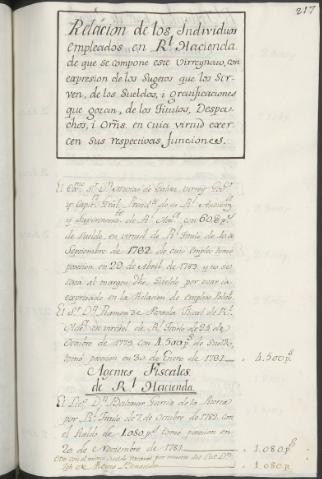 217
Relacion de los Individuos
empleados en R.l Hacienda
de que se compone este Virreynato, con
expresion de los Sugetos que los Sir-
ven, de los Sueldos, i gratificaciones
que gozan, de los Titulos, Despa-
chos, i Orns. en cuia virtud exer-
cen sus respectivas funciones.
El Exmo. Sor. Dn. de Galvez, Virrey
y Capn. Gral.
y de Rl. con 60@ ps.
de Sueldo, en virtud de Rl. Titulo de
Septiembre de 1782 de cuio empleo tomó
posesion en 29 de Abril de 1783 y no se
saca al margen dho. Sueldo por estar ia
expresado en la Relacion de empleos
El Sr. Dn. Ramon de Posada Fiscal de Rl.
Hda. en virtud de Rl. Titulo de 24 de
Octubre de 1779 con 4.500 ps. de Sueldo,
tomó posesion en 30 de Enero de 1781 4.500 ps
Agentes Fiscales
de R.l Hacienda
El Licdo. Dn. Baltasar Garcia de la
por Rl. Titulo de 2 de Octubre de 1783, con
el Sueldo de 1.080 ps. tomó posesion en
20 de Noviembre de 1781 1.080 ps
Otro con el mismo Sueldo
1.080 p